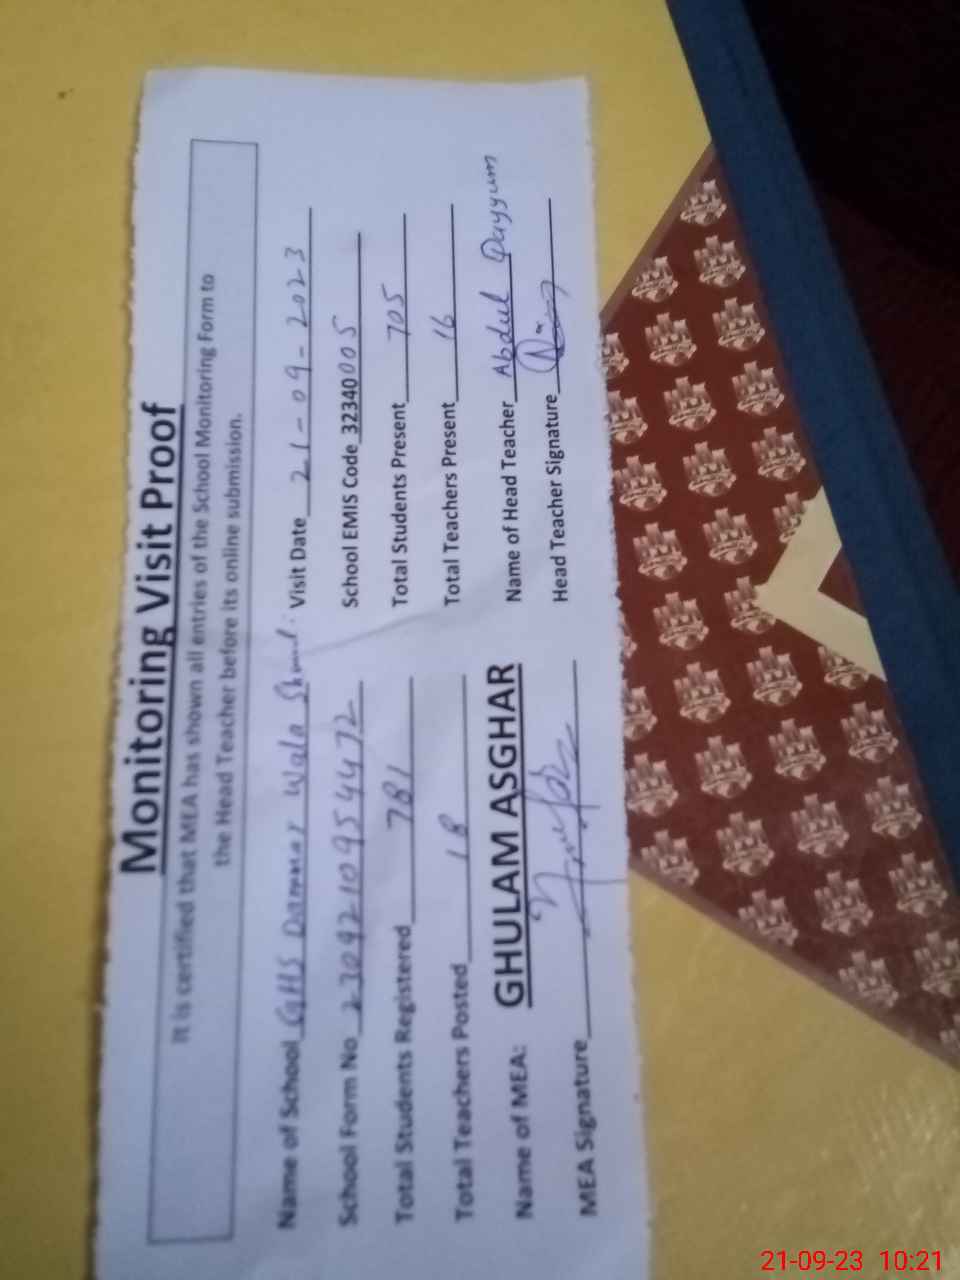 Monitoring Visit Proof
It is certified that MEA has shown all entries of the School Monitoring Form to
the Head Teacher before its online submission.
Name of School GHS Dammar Wala Visit Date 21-09-2023
School Form No 2309210954472 School EMIS Code 32340005
Total Students Registered 781 Total Students Present 705
Total Teachers Posted 18 Total Teachers Present 16
Name of MEA: GHULAM ASGHAR Name of Head Teacher Abdul Qayyum
MEA Signature Head Teacher Signature
21-09-23 10:21